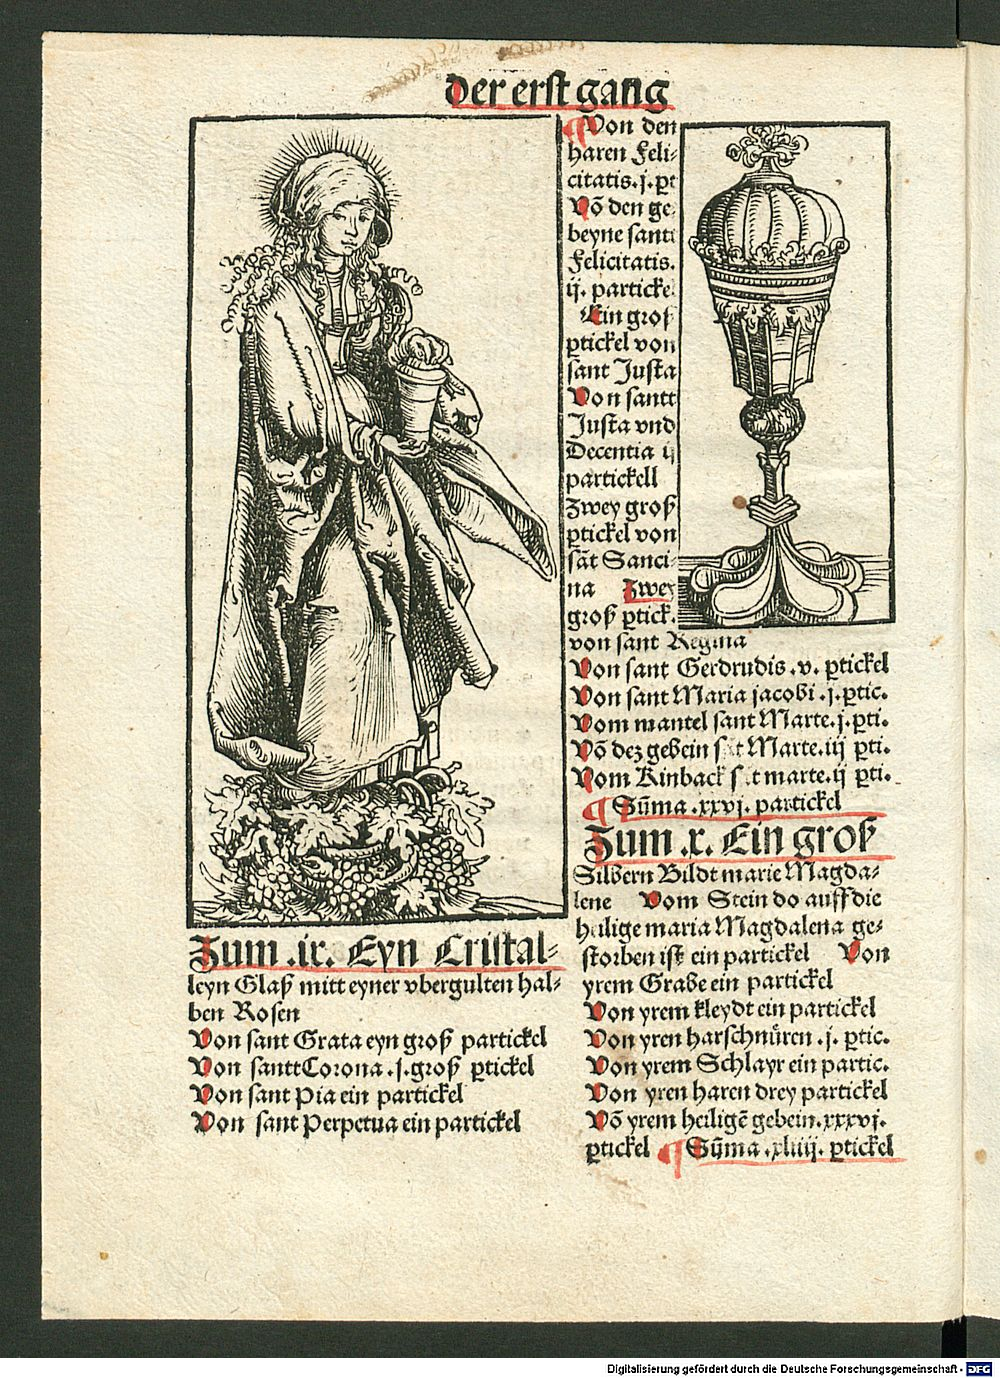 der erst gang
Zum .ix. Eyn Cristal-
leyn Glaß mitt eyner vbergulten hal-
ben Rosen
Von sant Grata eyn groß partickel
Von santt Corona .j. groß ptickel
Von sant Pia ein partickel
Von sant Perpetua ein partickel
¶ Von den
haren Feli-
citatis. j. pt
Võ den ge-
beyne sant
Felicitatis.
ij. partickel
Ein groß
ptickel von
sant Justa
Von santt
Justa vnd
Decentia ij
partickell
Zwey groß
ptickel von
sãt Sanci-
na Zwey
groß ptick.
von sant Regina
Von sant Gerdrudis .v. ptickel
Von sant Maria jacobi .j. ptic.
Vom mantel sant Marte. j. pti.
Võ dez gebein sãt Marte. iij pti.
Vom Kinback sãt marte. ij pti.
¶ Sũma .xxvj. partickel
Zum .x. Ein groß
Silbern Bildt marie Magda-
lene Vom Stein do auff die
heilige maria Magdalena ge-
storben ist ein partickel Von
yrem Grabe ein partickel
Von yrem kleydt ein partickel
Von yren harschnůren .j. ptic.
Von yrem Schlayr ein partic.
Von yren haren drey partickel
Võ yrem heiligẽ gebein. xxxvj.
ptickel ¶ Sũma .xliiij. ptickel
Digitalisierung gefördert durch die Deutsche Forschungsgemeinschaft - DFG